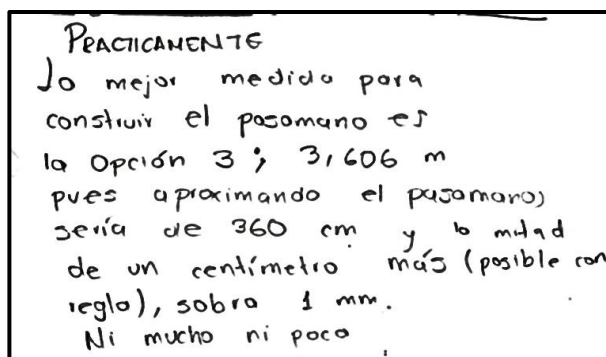 PRACTICAMENTE
lo mejor medida para
construir el pasamano es
la Opción 3; 3,606 m
pues aproximando el pasamano,
sería de 360 cm y la mitad
de un centímetro más (posible con
regla), sobra 1 mm.
Ni mucho ni poco